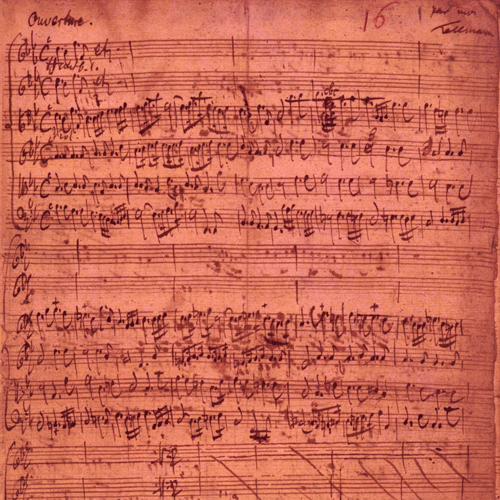 Ouverture.
16
par moi
Telemann